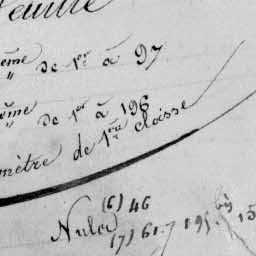 feuille
ème de 1er à 97
ème de 1er à 196
mètre de 1ère classe
(6) 46
(7) 61. 7 195. bis 15